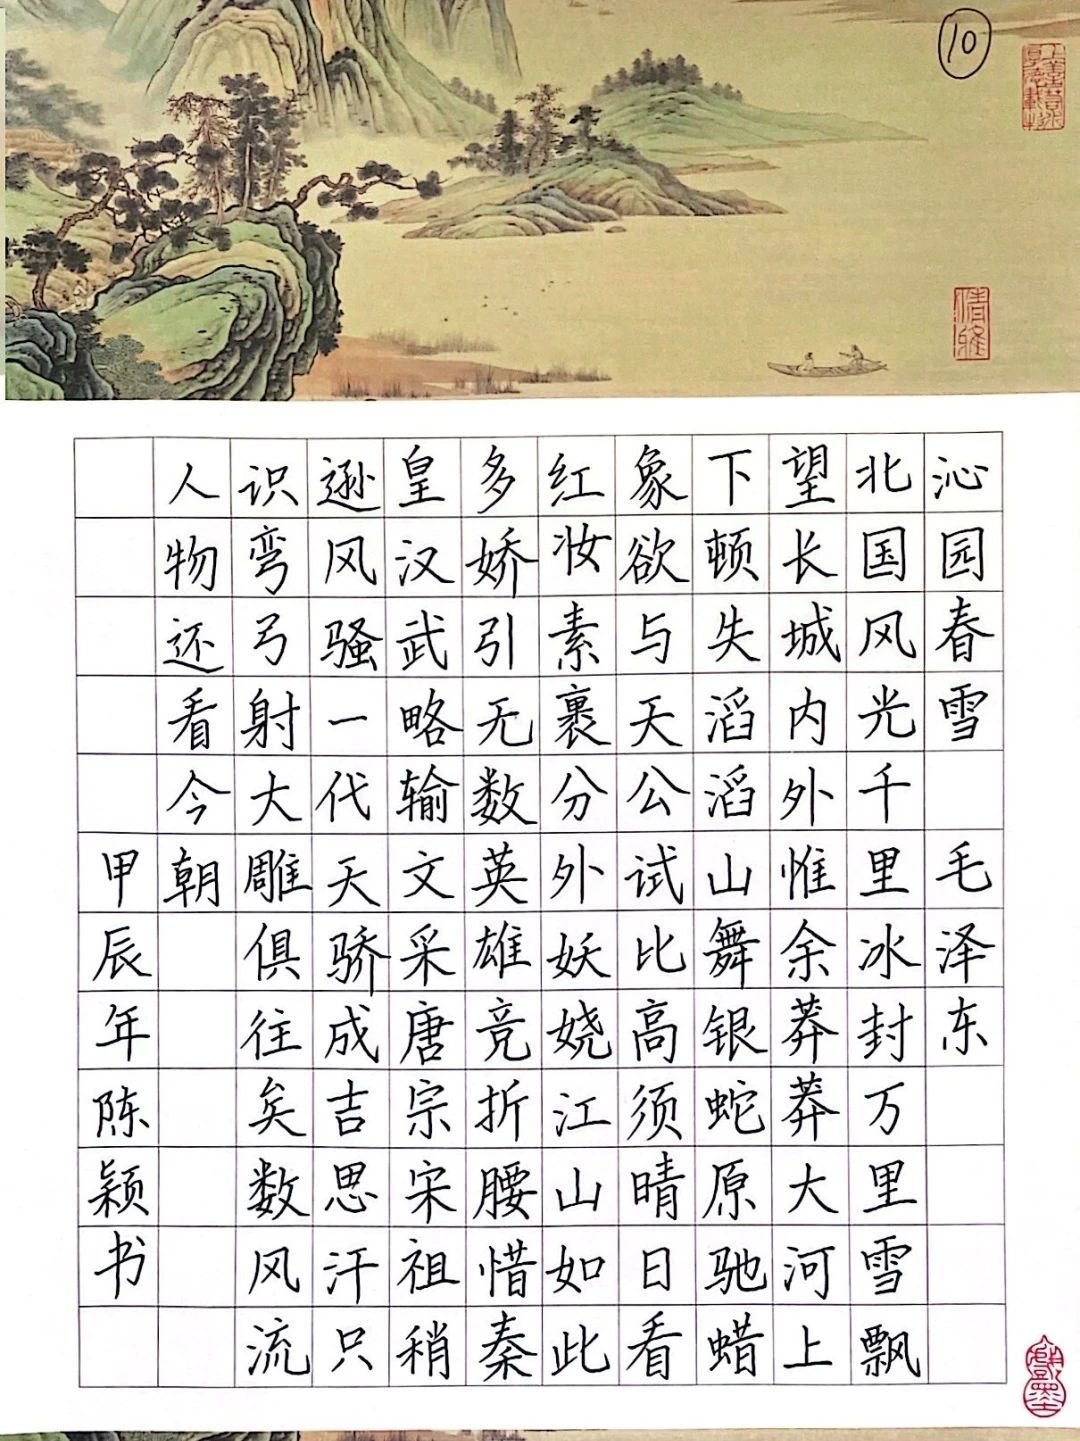 10
清雅
沁园春雪 毛泽东
北国风光千里冰封万里雪飘
望长城内外惟余莽莽大河上
下顿失滔滔山舞银蛇原驰蜡
象欲与天公试比高须晴日看
红妆素裹分外妖娆江山如此
多娇引无数英雄竞折腰惜秦
皇汉武略输文采唐宗宋祖稍
逊风骚一代天骄成吉思汗只
识弯弓射大雕俱往矣数风流
人物还看今朝
甲辰年陈颖书